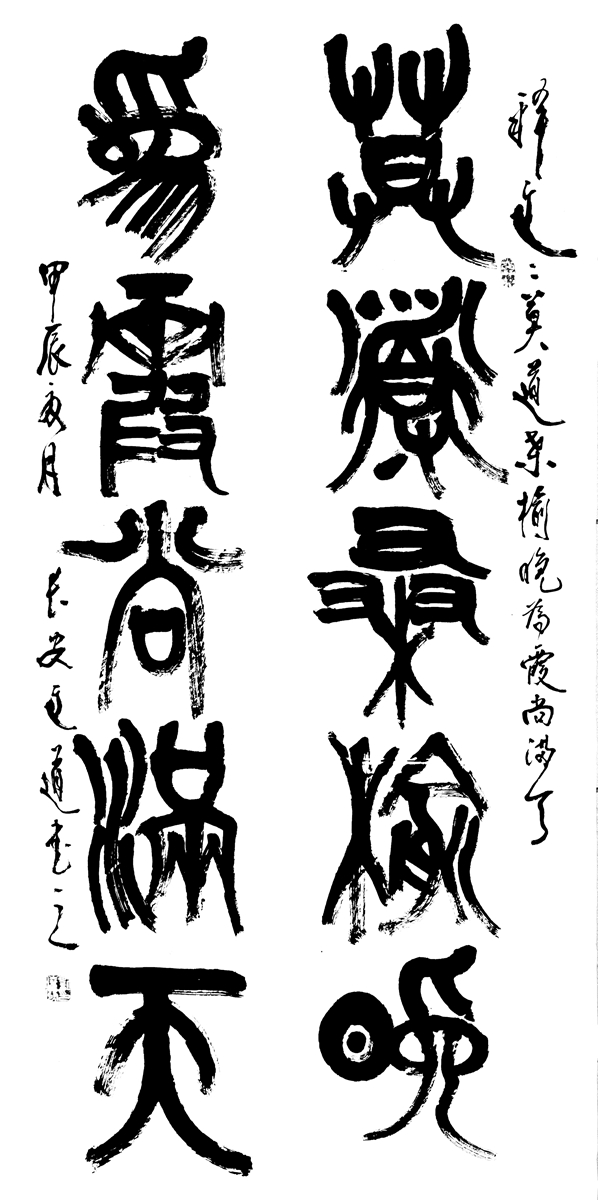 釋文：莫道桑榆晚為霞尚滿天
莫道桑榆晚
為霞尚滿天
甲辰夏月 长安文道書